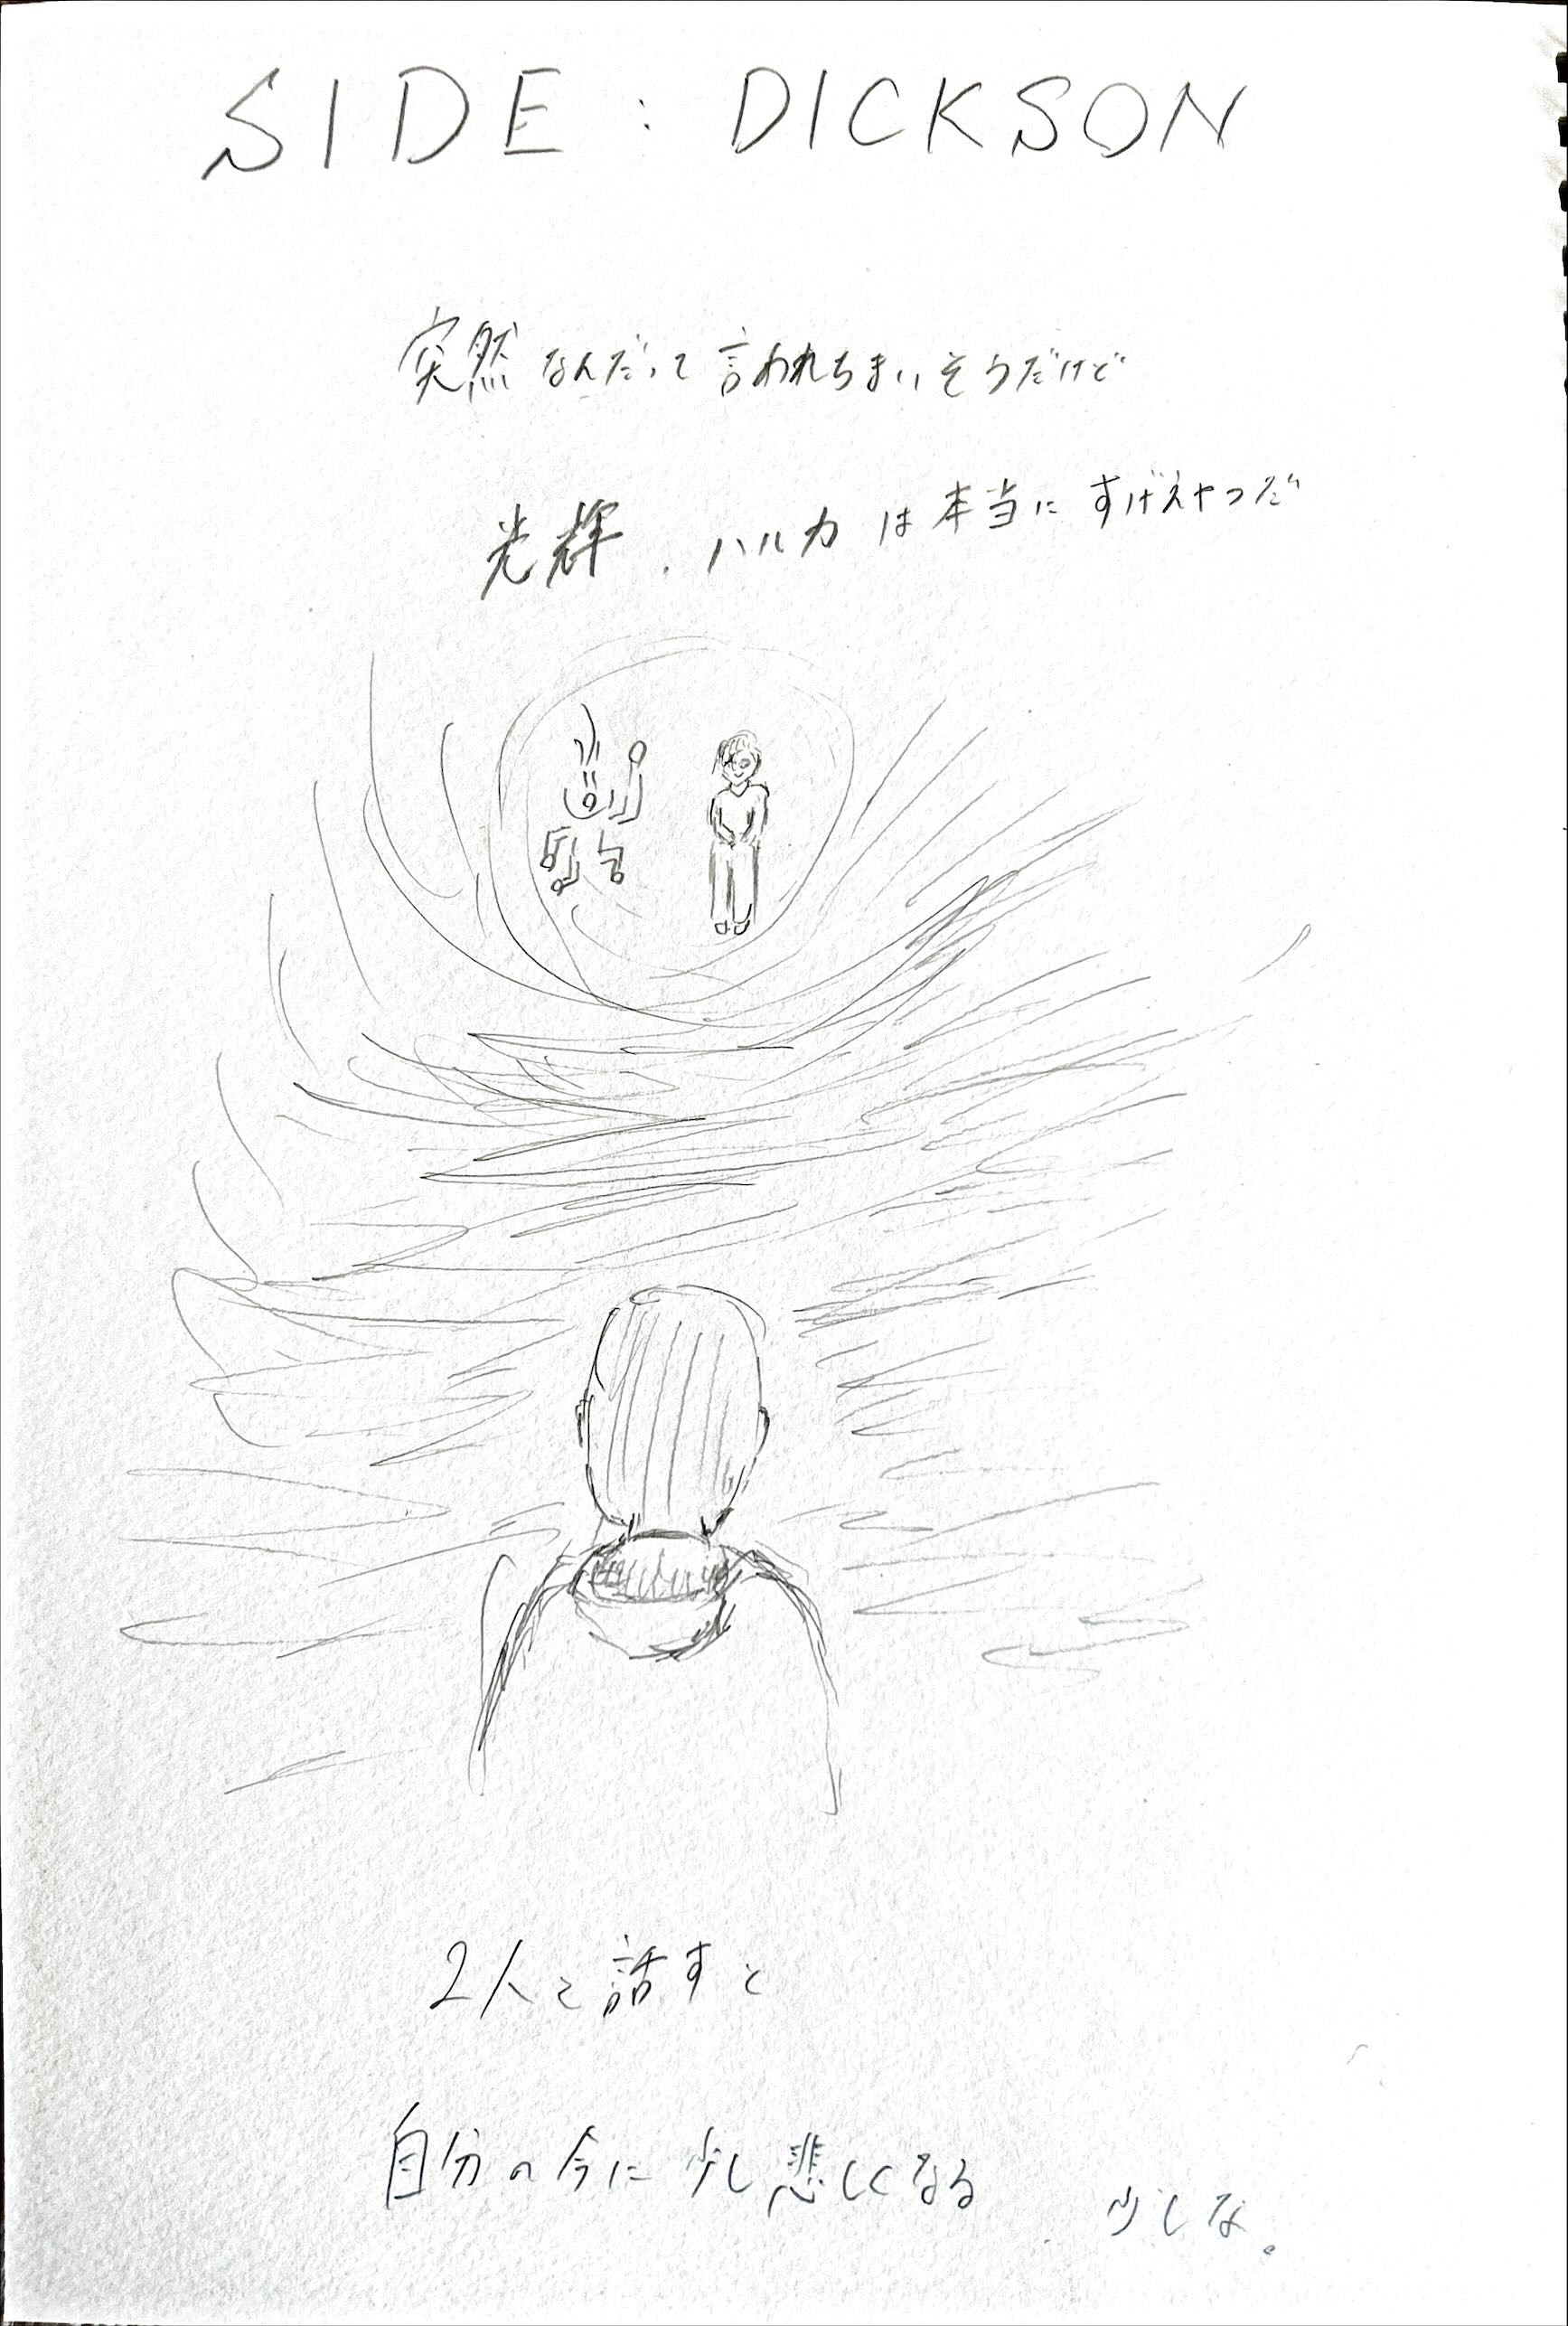 SIDE : DICKSON
突然なんだって言われちまいそうだけど
光輝、ハルカは本当にすげえやつだ
2人と話すと
自分の今に少し悲しくなる 少しな。